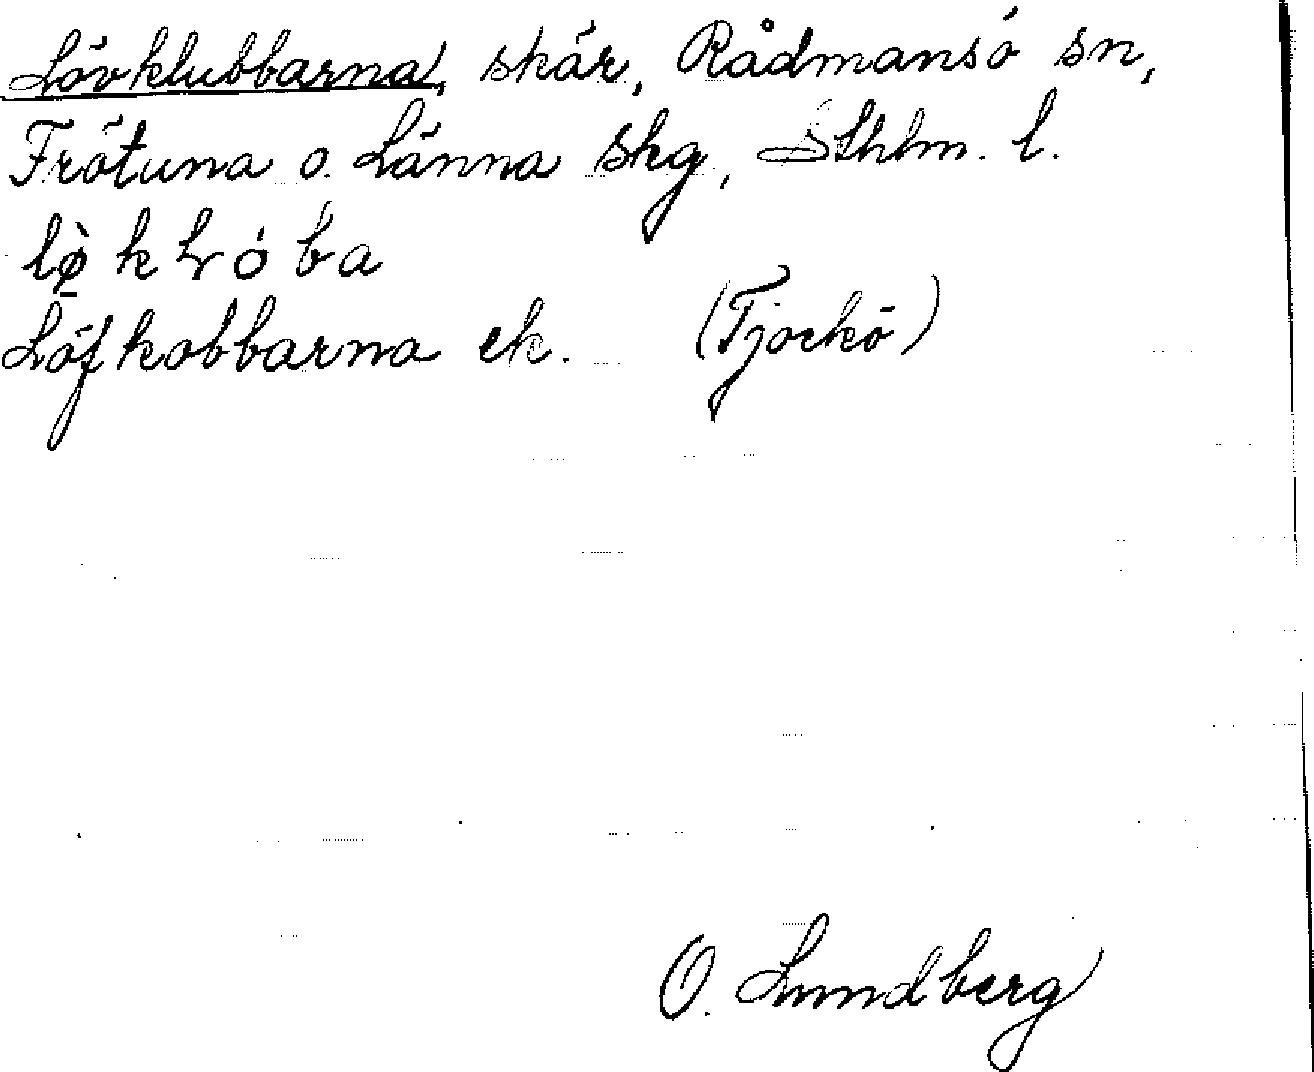 Lövklubbarna, skär, Rådmansö sn,
Frötuna o. Länna skg, Sthlm. l.
Löfkobbarna ek. (Tjockö)
O. Lundberg